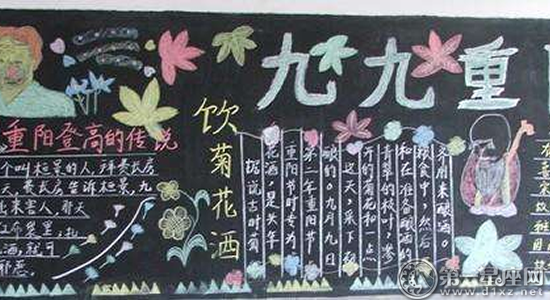 九九重
重阳登高的传说
个叫桓景的人，拜费长房
天，费长房告诉桓景，九
出来害人，那天
酒，就可
饮菊花酒
据说古时菊
花酒，是头年
重阳节时专为
第二年重阳节
酿的。九月九日
这天，采下初
开的菊花和一点
青翠的枝叶，掺
和在准备酿酒的
粮食中，然后
齐用来酿酒。
第一星座网
www.d1xz.net